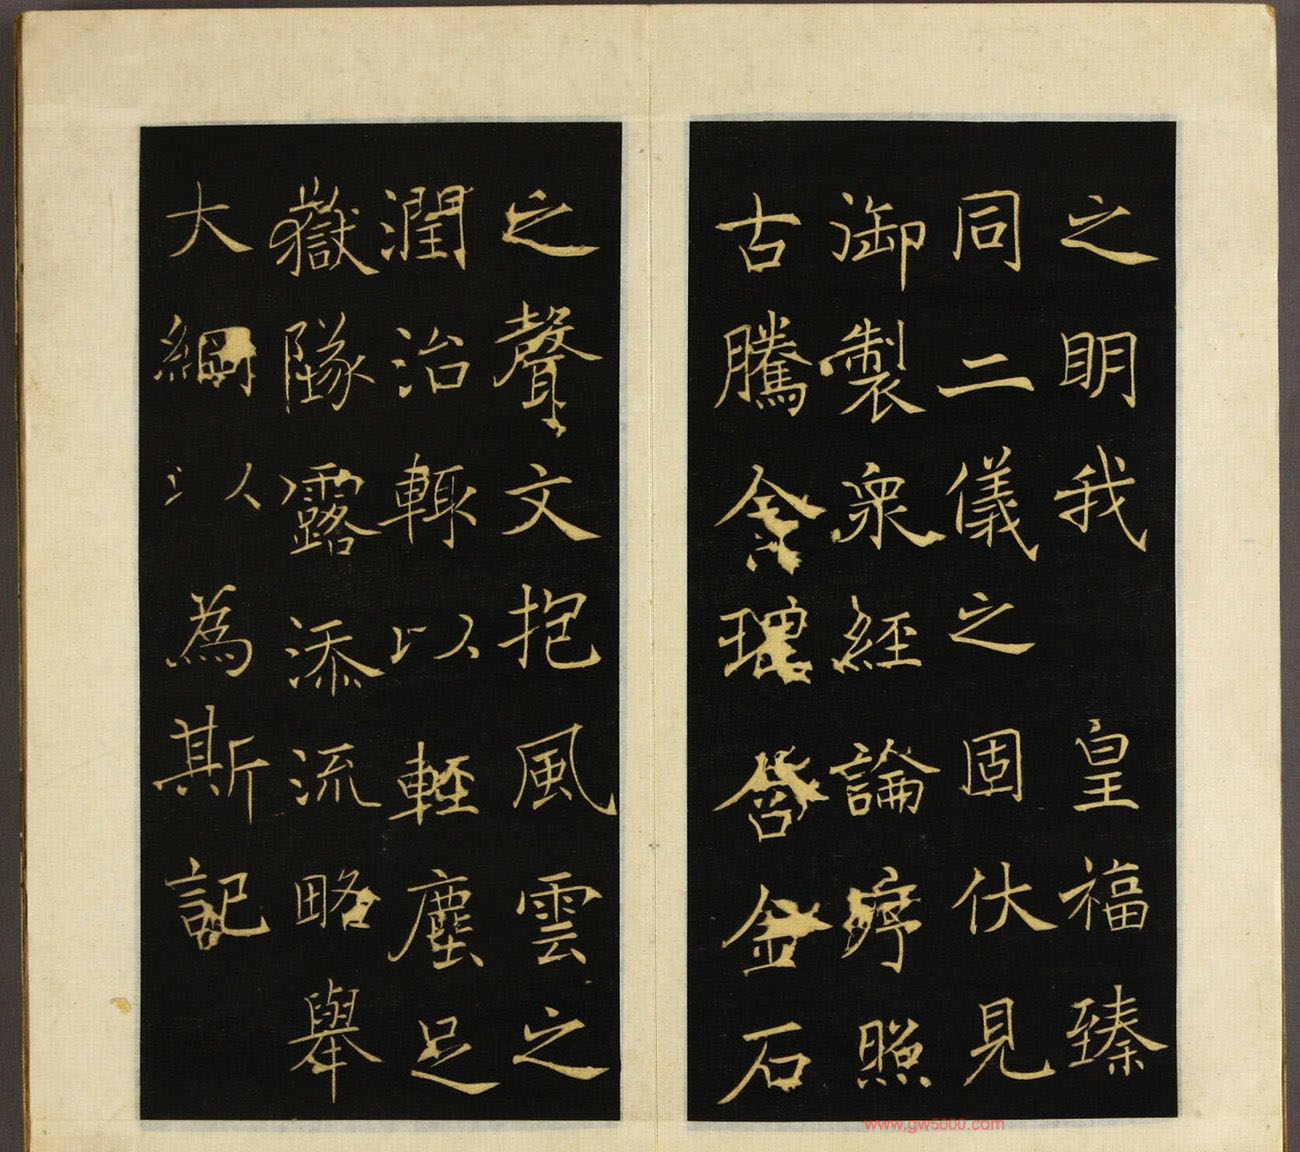 之明我皇福臻
同二儀之固伏見
御製衆經論序照
古騰今理含金石
之聲文抱風雲之
潤治輒以輕塵足
嶽隊露添流略舉
大綱以為斯記
www.gw5000.com